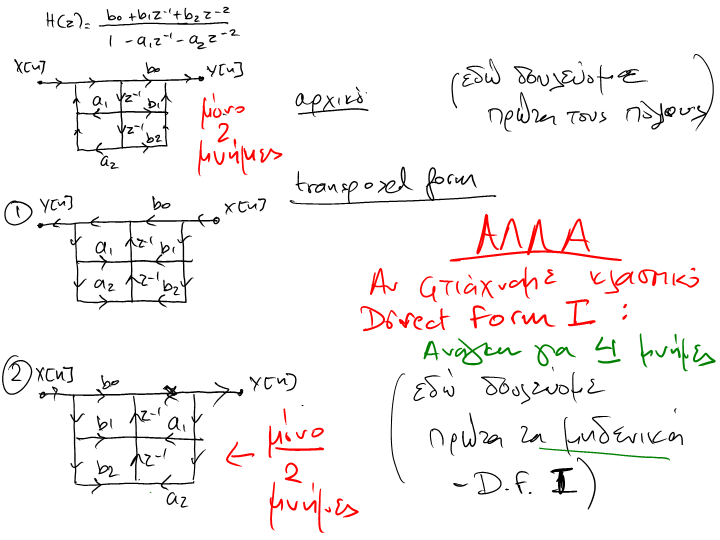 H(z) = b0 + b1z^-1 + b2z^-2 / 1 - a1z^-1 - a2z^-2
x[n] b0 y[n]
a1 z^-1 b1
z^-1 b2
a2
μόνο
2
μνήμες
αρχικό
(εδώ δουλεύουμε
πρώτα τους πόλους)
transposed form
① y[n] b0 x[n]
a1 z^-1 b1
a2 z^-1 b2
ΑΛΛΑ
Αν φτιάχναμε κλασσικό
Direct form I :
Ανάγκη για 4 μνήμες
② x[n] b0 y[n]
b1 z^-1 a1
b2 z^-1
a2
← μόνο
2
μνήμες
(εδώ δουλεύουμε
πρώτα τα μηδενικά
- D.f. I)